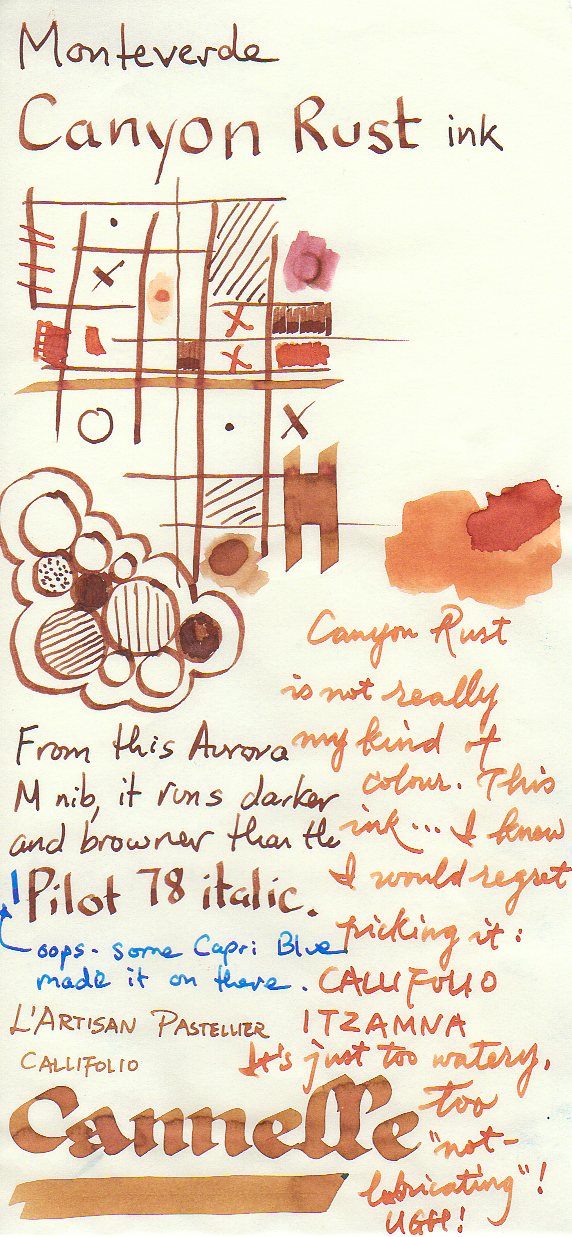 Monteverde
Canyon Rust ink
From this Aurora
M nib, it runs darker
and browner than the
Pilot 78 italic.
oops - some Capri Blue
made it on there.
L'ARTISAN PASTELLIER
CALLIFOLIO
Cannelle
Canyon Rust
is not really
my kind of
colour. This
ink... I knew
I would regret
picking it:
CALLIFOLIO
ITZAMNA
It's just too watery,
too
"not-
lubricating"!
UGH!